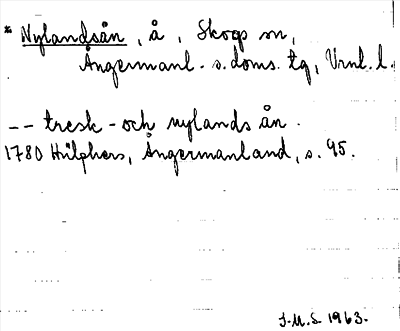 * Nylandsån, å, Skogs sn,
Ångermanl. s. doms. tg, Vrnl. l.
-- tresk- och nylands ån.
1780 Hülphers, Ångermanland, s. 95.
J.M.S. 1963.